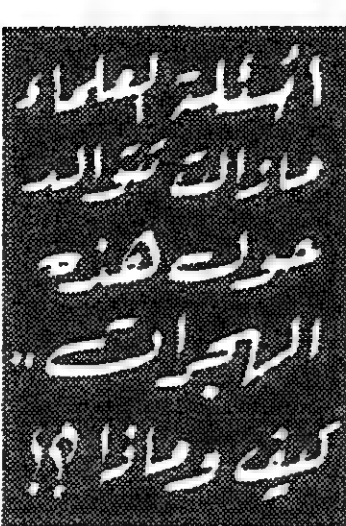 أسئلة العلماء
مازالت تتوالد
حول هذه
الهجرات ..
كيف وماذا ؟!